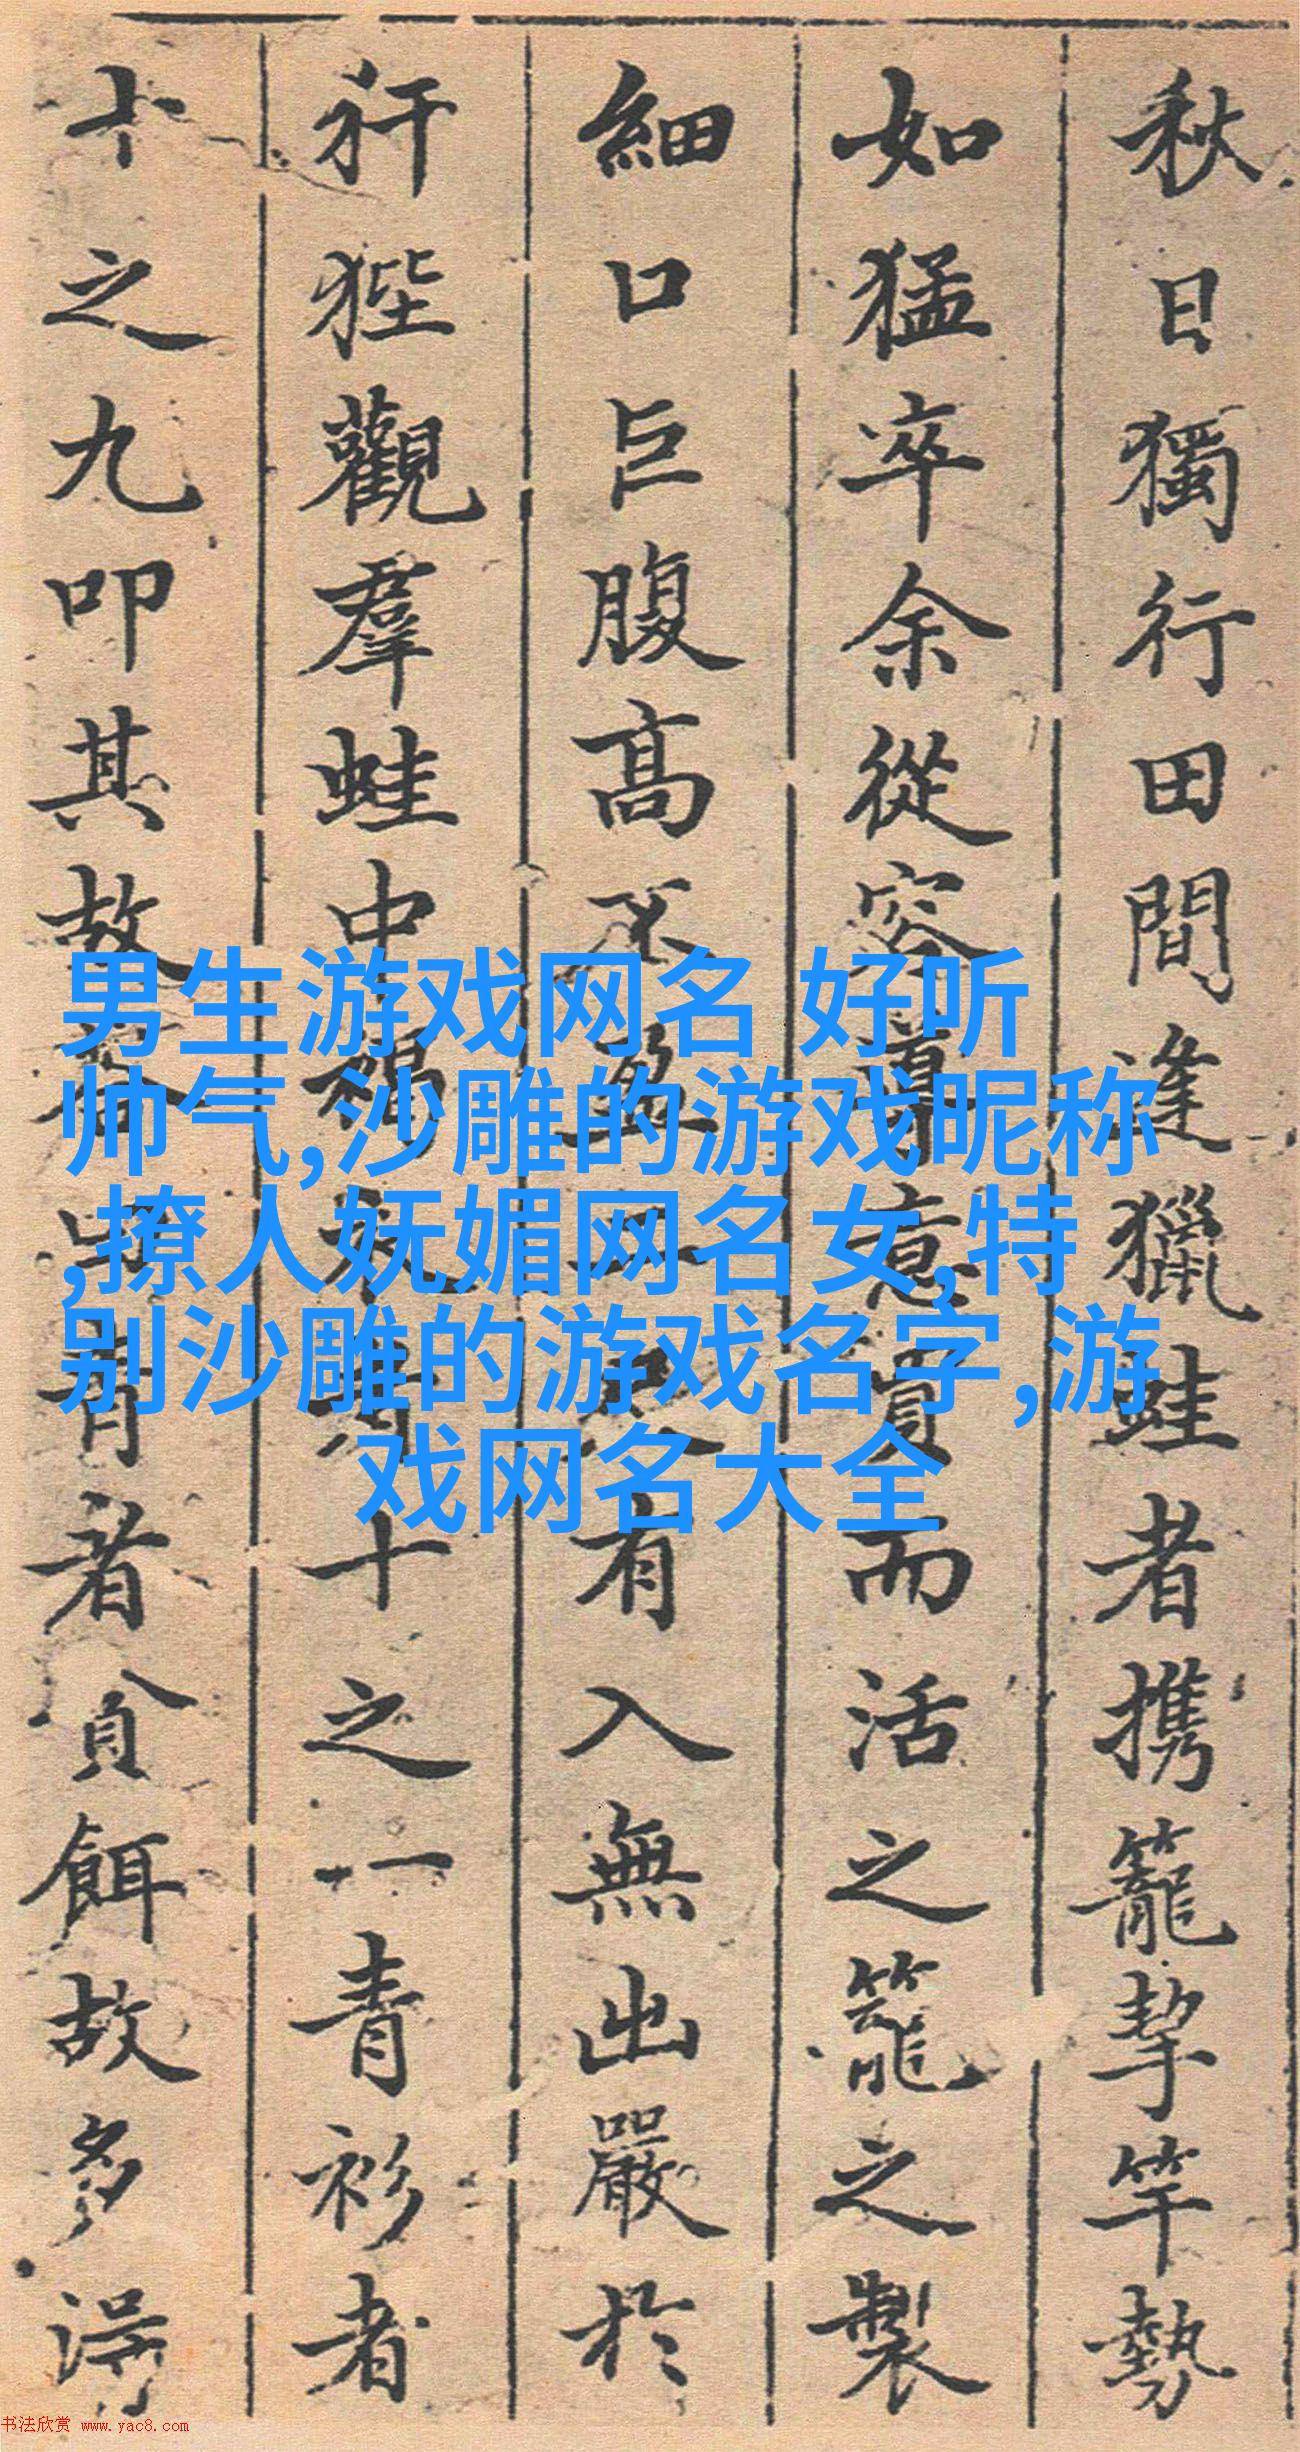 秋日獨行田間逢獵蛙者携籠挈竿勢
如猛卒余從容尊意賈而活之籠之製
細口巨腹高不盈尺有入無出嚴於
犴狴觀羣蛙中褐衣者十之一青衫者
十之九叩其故者曰青者貪餌故多得
男生游戏网名 好听
帅气,沙雕的游戏昵称
,撩人妩媚网名女,特
别沙雕的游戏名字,游
戏网名大全
书法欣赏 www.yac8.com